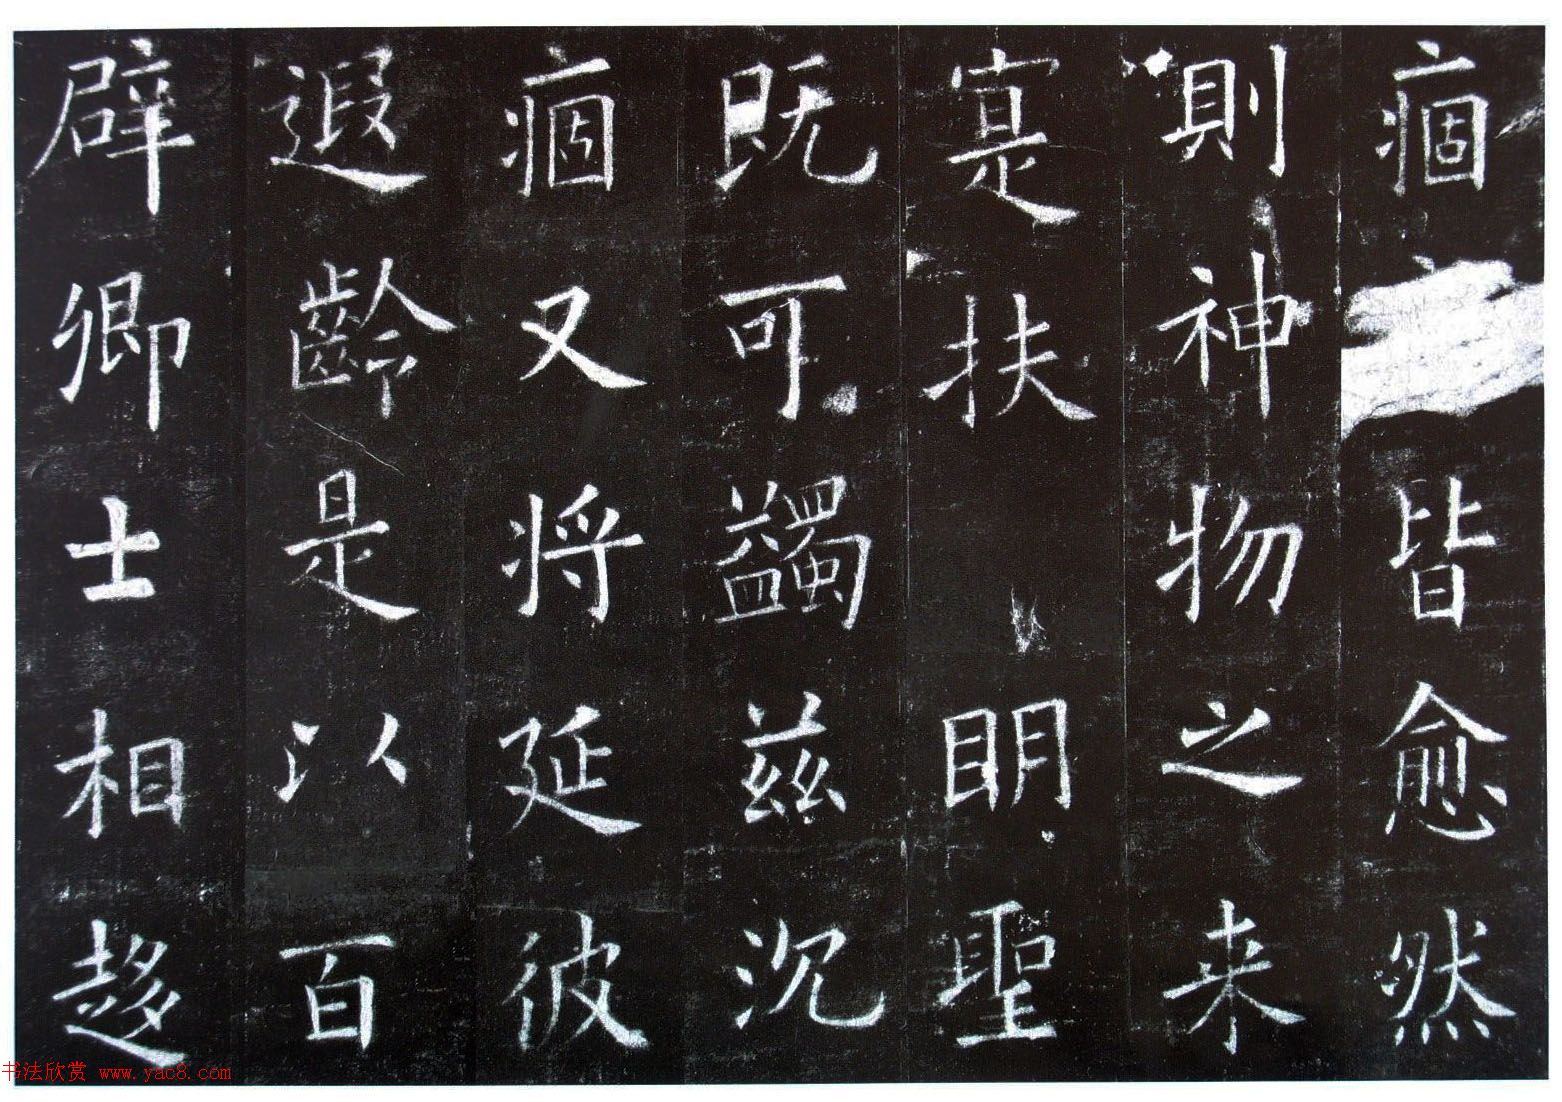 痼皆愈然
則神物之来
寔扶明聖
既可蠲兹沉
痼又将延彼
遐龄是以百
辟卿士相趍
书法欣赏 www.yac8.com